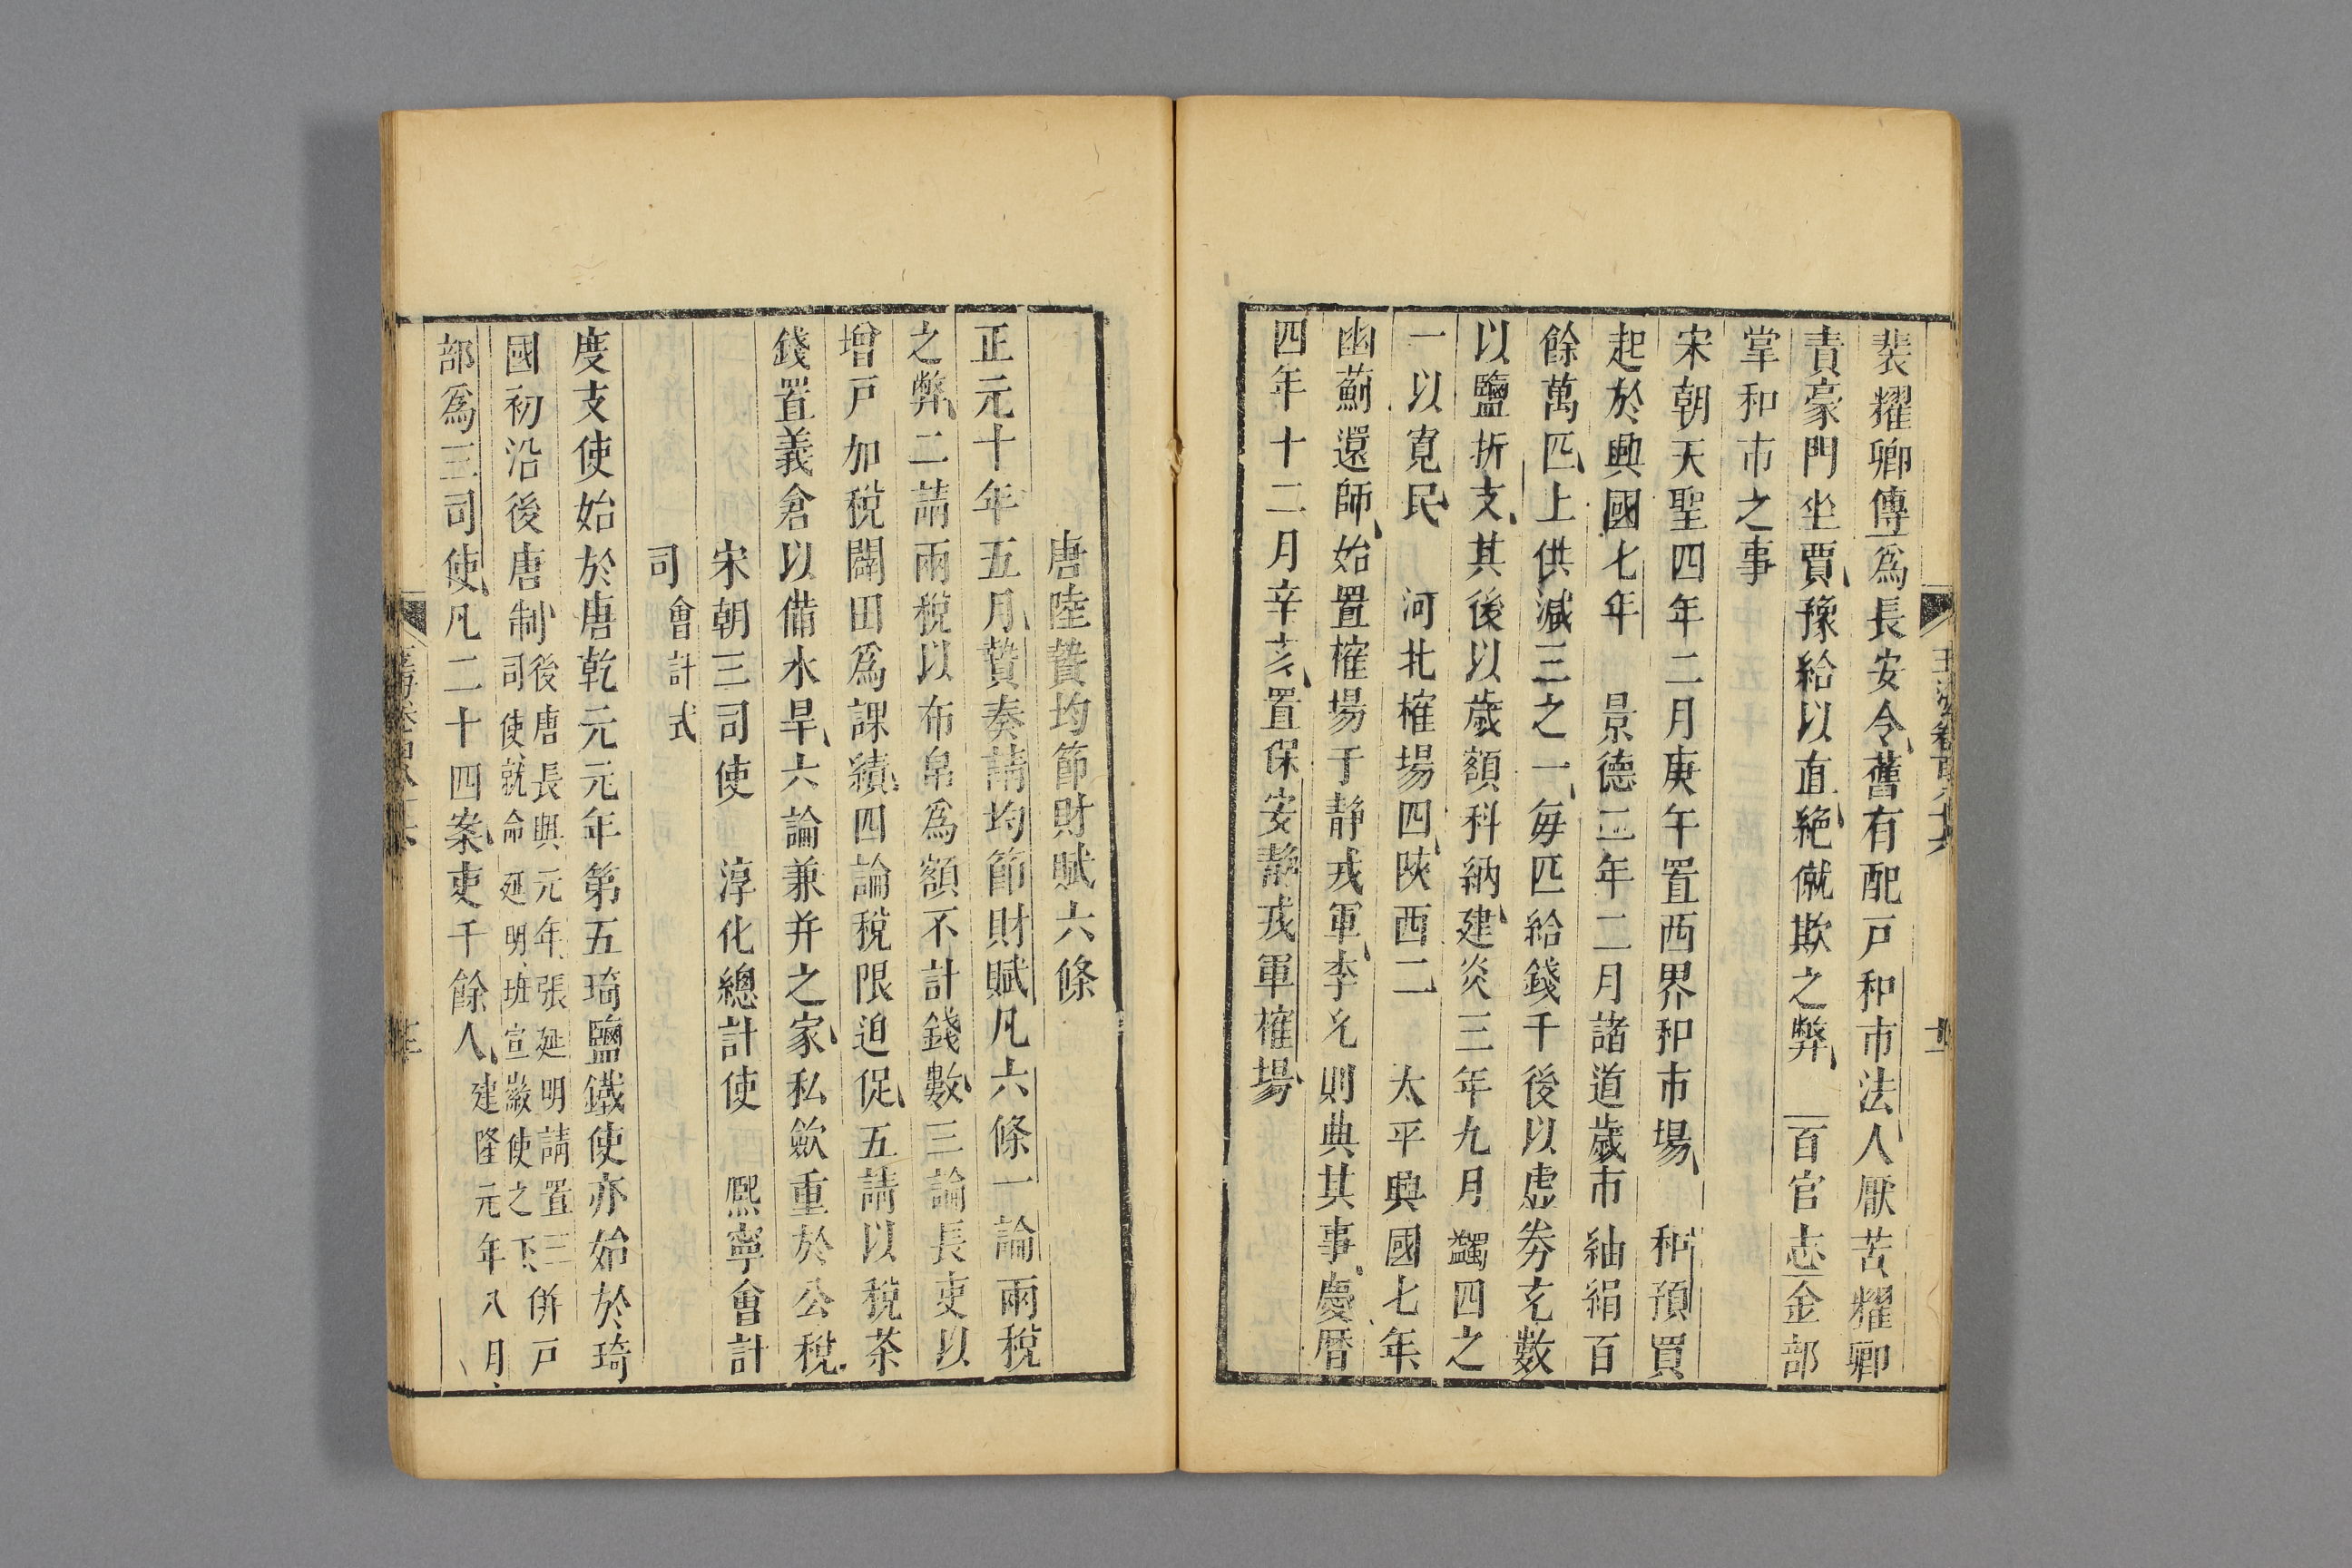 裴耀卿傳爲長安令舊有配戸和市法人厭苦耀卿
責豪門坐賈豫給以直絶僦欺之弊 百官志金部
掌和市之事
宋朝天聖四年二月庚午置西界和市場 和預買
起於興國七年 景德三年二月諸道歲市紬絹百
餘萬匹上供減三之一毎匹給錢千後以虚券充數
以鹽折支其後以歲額科納建炎三年九月蠲四之
一以寬民 河北榷場四陝西二 太平興國七年
幽薊還師始置榷場于靜戎軍李允則典其事慶曆
四年十二月辛亥置保安靜戎軍榷場
唐陸贄均節財賦六條
正元十年五月贄奏請均節財賦凡六條一論兩稅
之弊二請兩稅以布帛爲額不計錢數三論長吏以
增戸加稅闢田爲課績四論稅限迫促五請以稅茶
錢置義倉以備水旱六論兼并之家私斂重於公稅
宋朝三司使 淳化總計使 熙寧會計
司會計式
度支使始於唐乾元元年第五琦鹽鐵使亦始於琦
國初沿後唐制後唐長興元年張延明請置三司使就命延明班宣徽使之下併戸
部爲三司使凡二十四案吏千餘人建隆元年八月